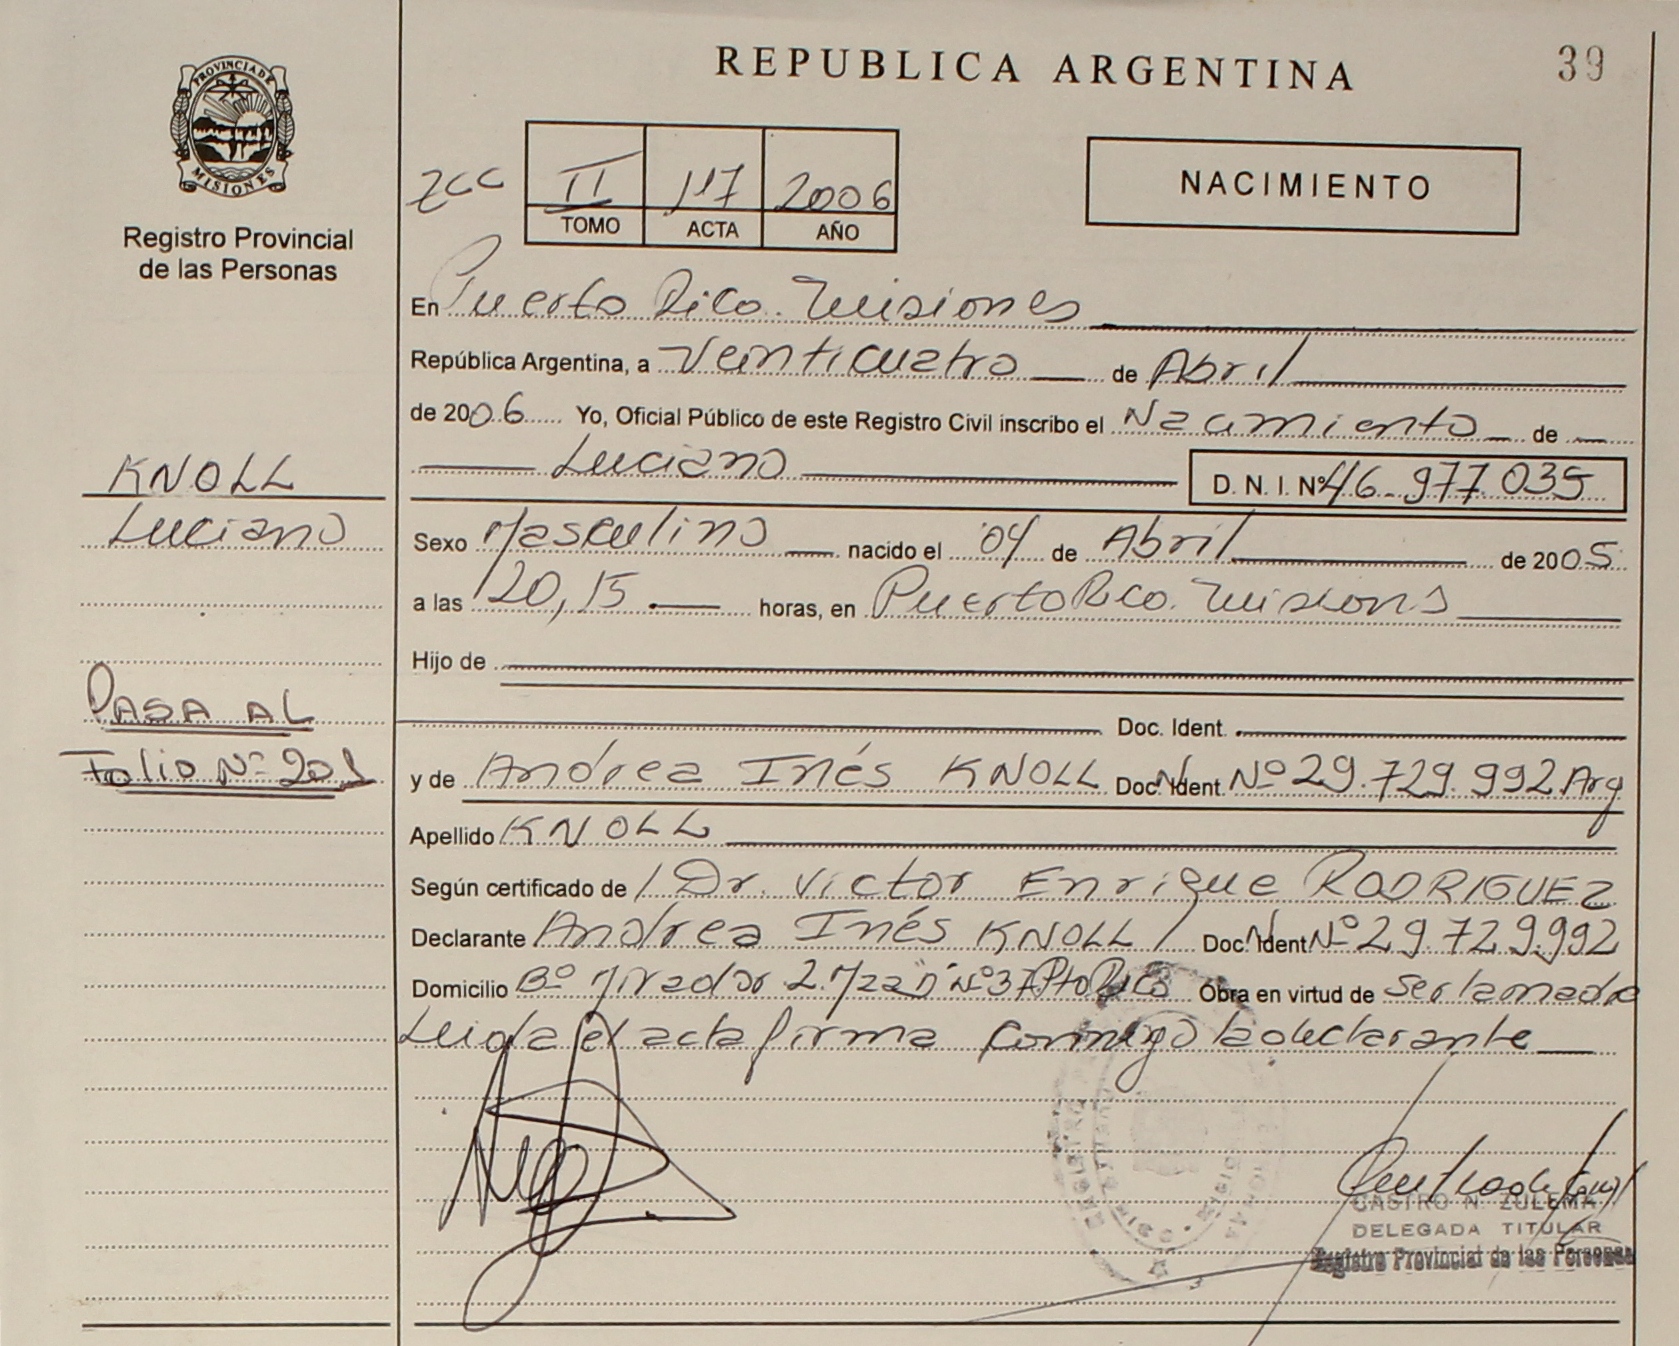 REPUBLICA ARGENTINA
39
PROVINCIA DE
MISIONES
Registro Provincial
de las Personas
NACIMIENTO
II 117 2006
TOMO ACTA AÑO
En Puerto Rico. Misiones
República Argentina, a Veinticuatro de Abril
de 2006 Yo, Oficial Público de este Registro Civil inscribo el Nacimiento de
Luciano D. N. I. Nº 46.977.035
KNOLL
Luciano
Sexo Masculino nacido el 04 de Abril de 2005
a las 20,15 horas, en Puerto Rico. Misions
Hijo de
Doc. Ident.
PASA AL
Folio Nº 201
y de Andrea Inés KNOLL Doc. N. Ident. Nº 29.729.992 Arg
Apellido KNOLL
Según certificado de Dr. Victor Enrique RODRIGUEZ
Declarante Andrea Inés KNOLL Doc. N. Ident Nº 29.729.992
Domicilio Bº Mirador 2. Mza D Nº 37 Pto Rico Obra en virtud de ser la madre
Leida el acta firma conmigo la declarante
CASTRO N. ZULEMA
DELEGADA TITULAR
Registro Provincial de las Personas